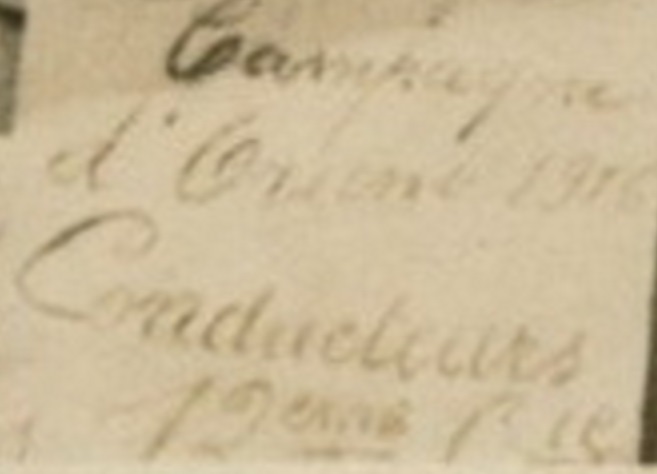 Campagne
d'Orient 1916
Conducteurs
12eme Cie